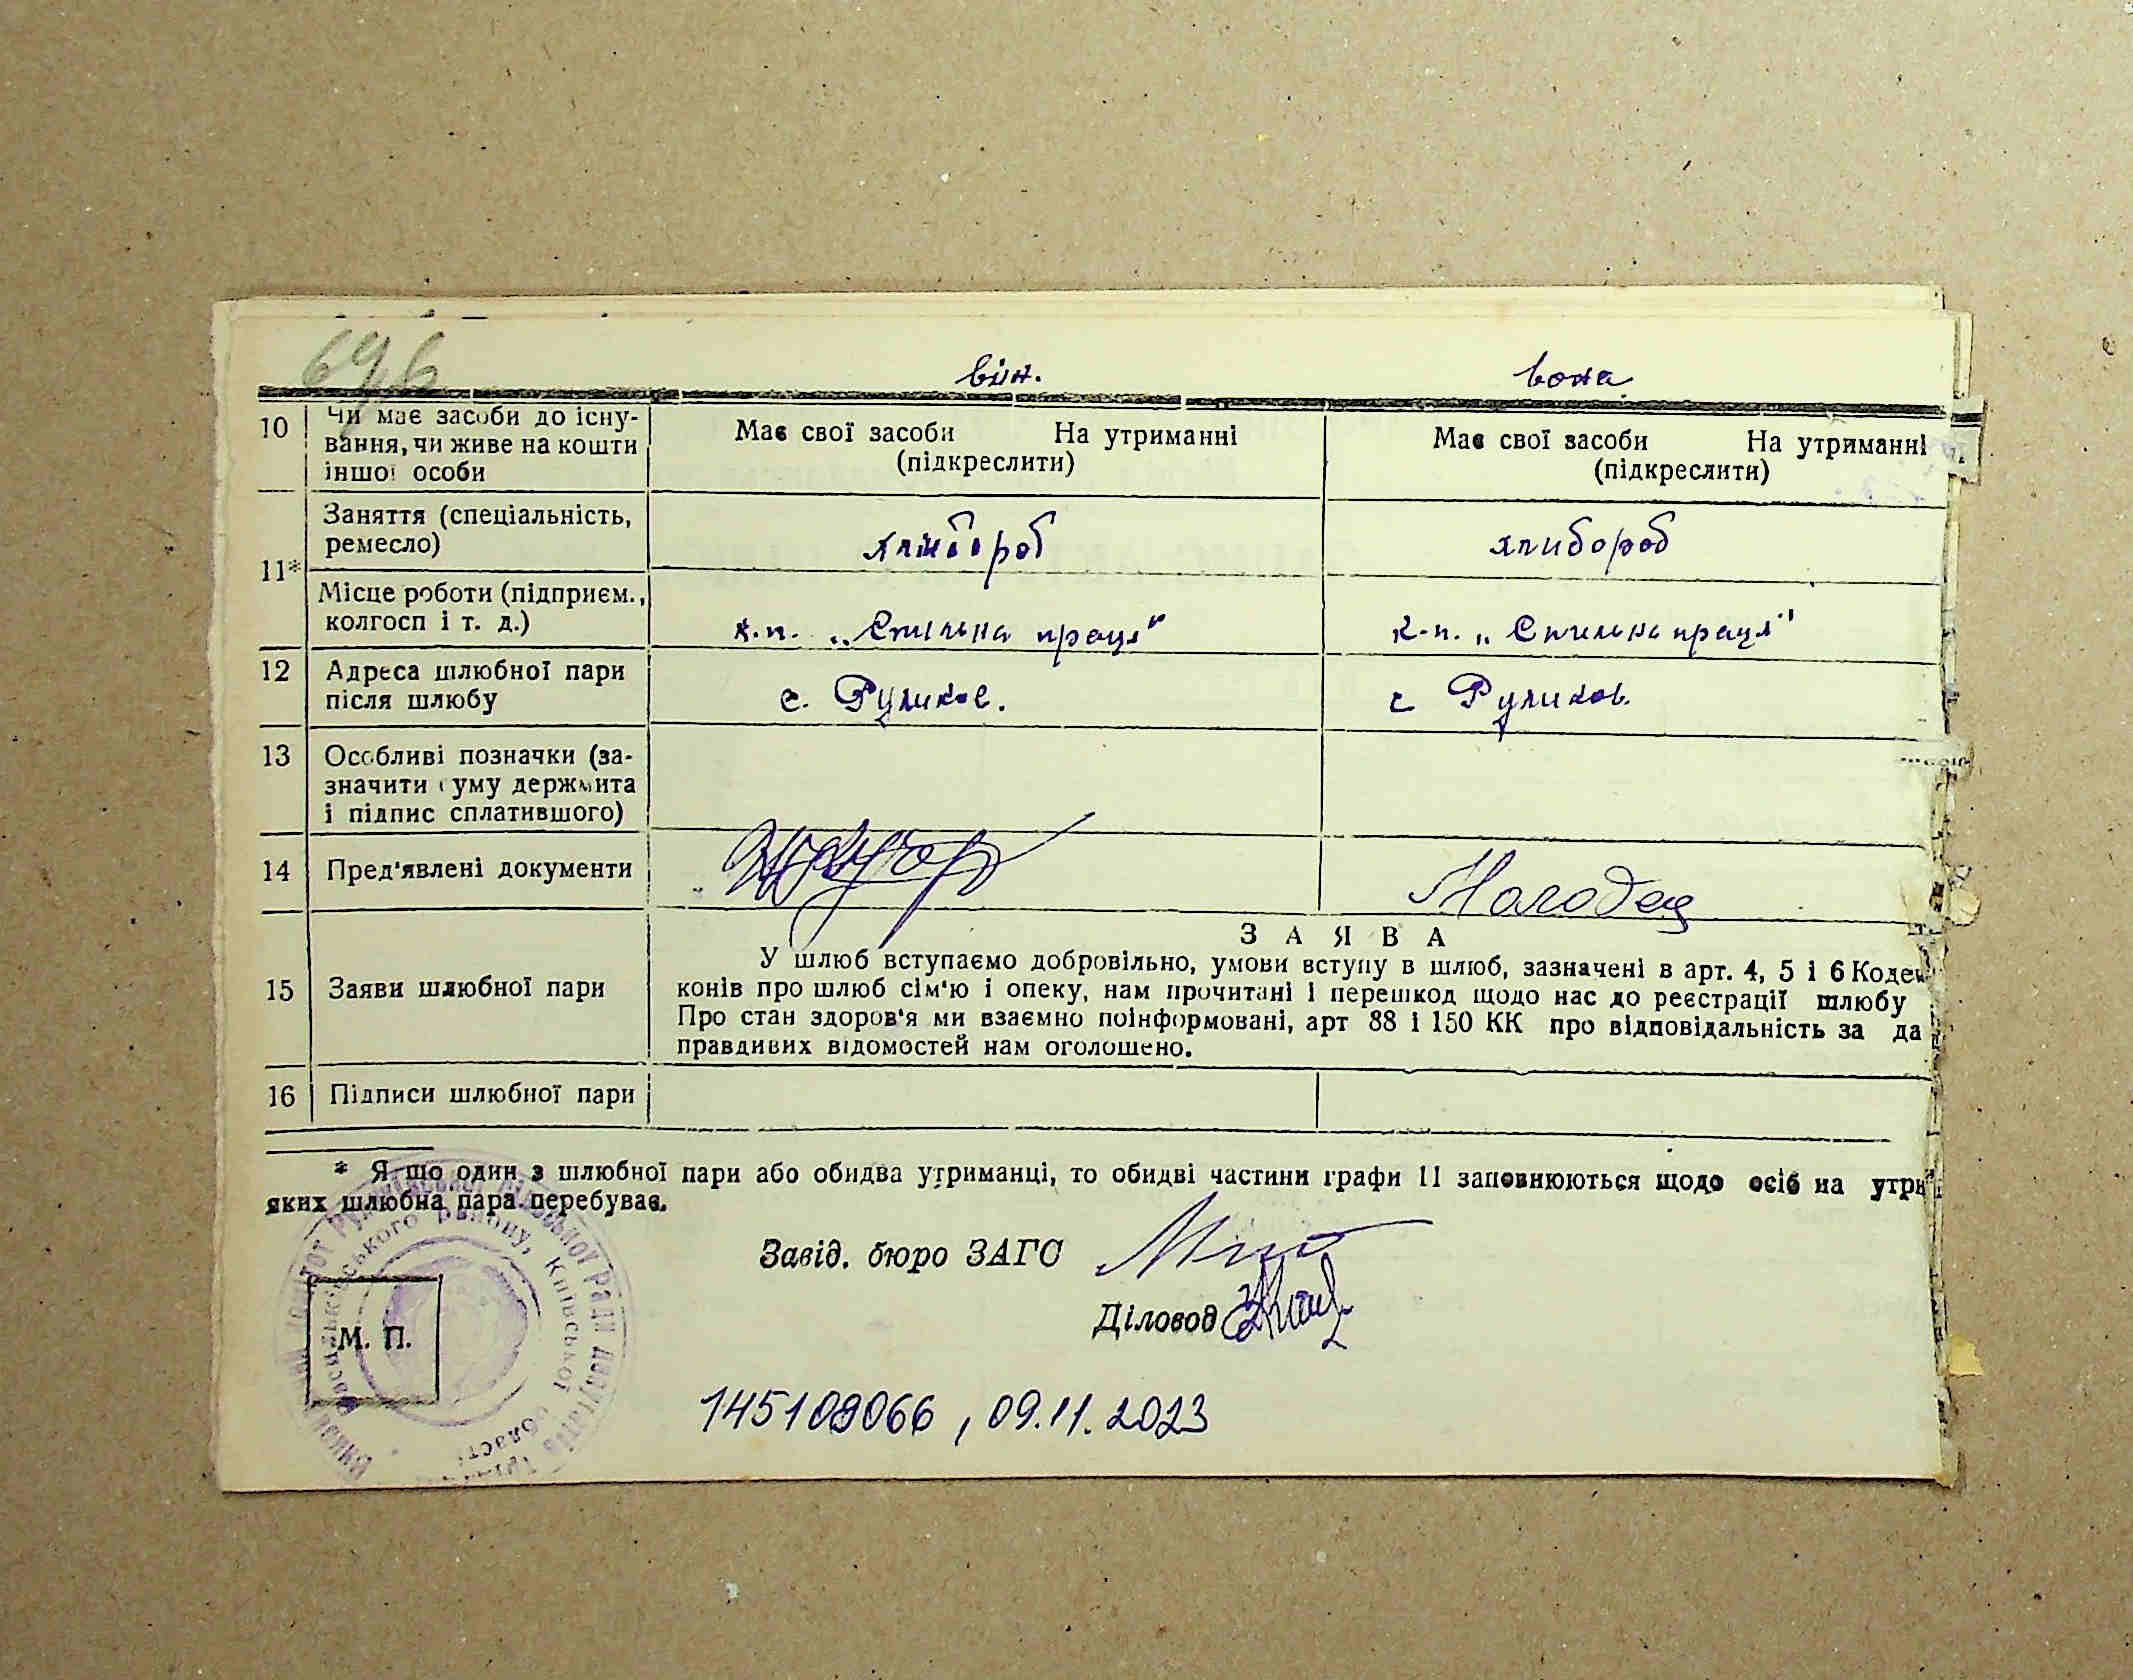 696
він. вона
10 Чи має засоби до існу-
вання, чи живе на кошти
іншої особи
Має свої засоби На утриманні
(підкреслити)
Має свої засоби На утриманні
(підкреслити)
11*
Заняття (спеціальність,
ремесло)
хлибороб хлибороб
Місце роботи (підприєм.,
колгосп і т. д.)
к.п. „Спильна праця" к-п. „Спильна праця"
12 Адреса шлюбної пари
після шлюбу
с. Руликов. с Руликов.
13 Особливі позначки (за-
значити суму держмита
і підпис сплатившого)
14 Пред'явлені документи
Молодец
15 Заяви шлюбної пари
ЗАЯВА
У шлюб вступаємо добровільно, умови вступу в шлюб, зазначені в арт. 4, 5 і 6 Коде
конів про шлюб сім'ю і опеку, нам прочитані і перешкод щодо нас до реєстрації шлюбу
Про стан здоров'я ми взаємно поінформовані, арт 88 і 150 КК про відповідальність за да
правдивих відомостей нам оголошено.
16 Підписи шлюбної пари
* Якщо один з шлюбної пари або обидва утриманці, то обидві частини графи 11 заповнюються щодо осіб на утри
яких шлюбна пара перебуває.
Завід. бюро ЗАГС
Діловод
М. П.
району, Київської області
Ради депутатів
145108066, 09.11.2023